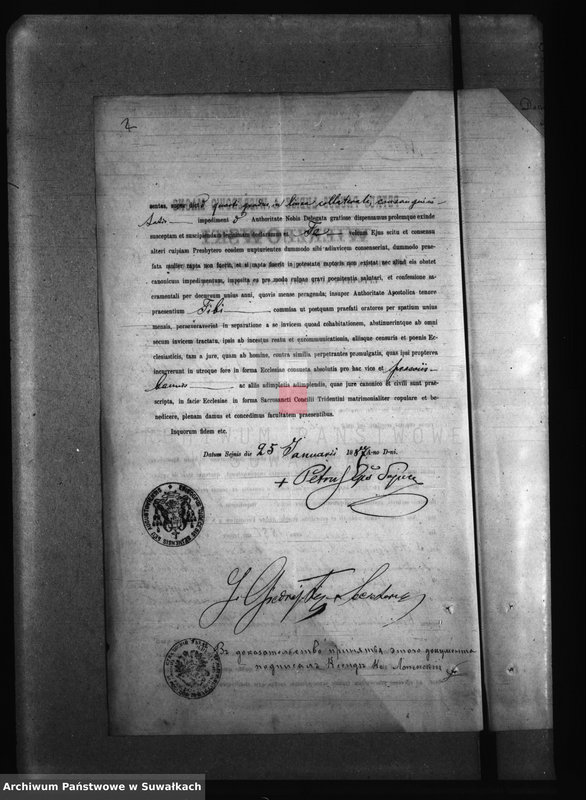 2
sentas, super dicto quarti gradus, in linea collaterali, consanguini-
tatis impedimento Authoritate Nobis Delegata gratiose dispensamus prolemque exinde
susceptam et suscipiendam legitimam declaramus et Te volenti Ejus scitu et consensu
alteri cuipiam Presbytero eosdem nupturientes dummodo sibi adinvicem consenserint, dummodo prae-
fata mulier rapta non fuerit, et si rapta fuerit in potestate raptoris non existat nec aliud eis obstet
canonicum impedimentum, imposita eis pro modo culpae gravi poenitentia salutari, et confessione sa-
cramentali per decursum unius anni, quovis mense peragenda; insuper Authoritate Apostolica tenore
praesentium Tibi commissa ut postquam praefati oratores per spatium unius
mensis, perseveraverint in separatione a se invicem quoad cohabitationem, abstinuerintque ab omni
secum invicem tractatu, ipsis ab incestus reatu et excommunicationis, aliisque censuris et poenis Ec-
clesiasticis, tam a jure, quam ab homine, contra similia perpetrantes promulgatis, quas ipsi propterea
incurrerunt in utroque fore in forma Ecclesiae consueta absolutis pro hac vice et praeviis
bannis ac aliis adimpletis adimplendis, quae jure canonico et civili sunt prae-
scripta, in facie Ecclesiae in forma Sacrosancti Concilii Tridentini matrimonialiter copulare et be-
nedicere, plenam damus et concedimus facultatem praesentibus.
Inquorum fidem etc.
Datum Sejnis die 25 Januarii 1887 A-no D-ni.
+ Petrus Eppus Sejnen
Въ доказательство принятія этого документа
подписалъ Ксендзъ
Archiwum Państwowe w Suwałkach